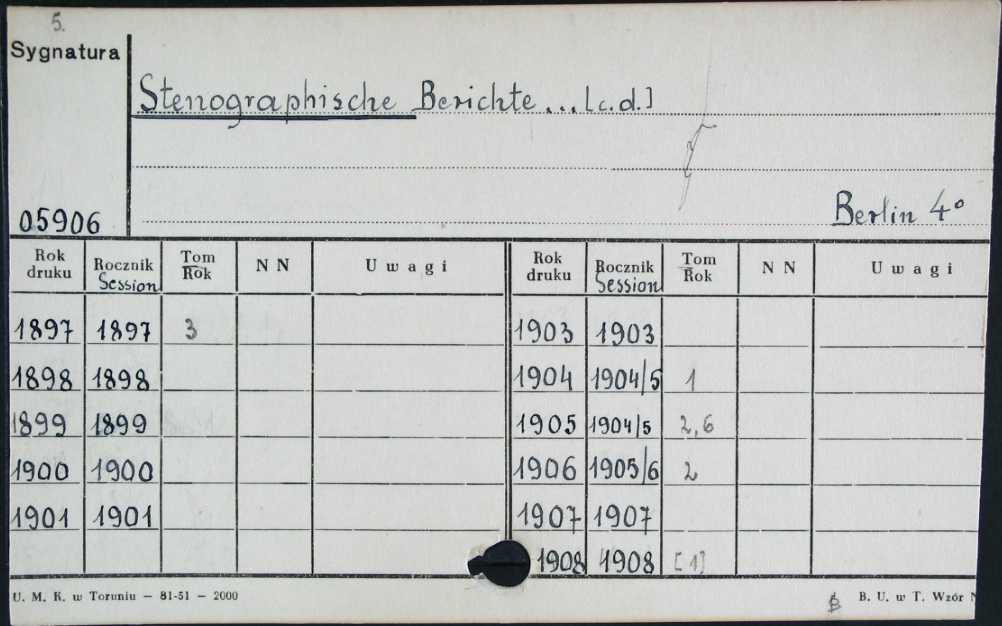 5.
Sygnatura
Stenographische Berichte ... [c.d.]
Berlin 4°
05906
Rok druku Rocznik Session Tom Rok N N Uwagi Rok druku Rocznik Session Tom Rok N N Uwagi
1897 1897 3 1903 1903
1898 1898 1904 1904/5 1
1899 1899 1905 1904/5 2,6
1900 1900 1906 1905/6 2
1901 1901 1907 1907
1908 1908 [1]
U. M. K. w Toruniu — 81-51 — 2000 B. U. w T. Wzór